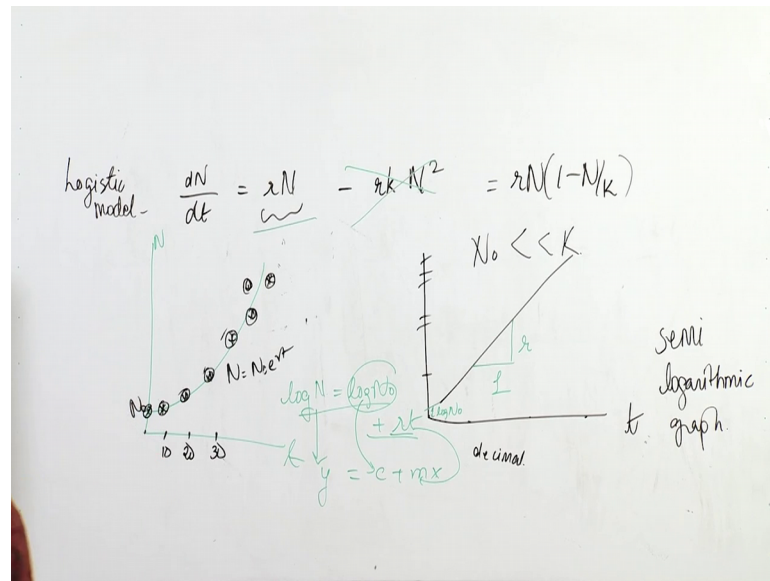 Logistic model - dN/dt = rN - rk N² = rN(1-N/K)
N
N₀ << K
N = N₀e^rt
N₀
10 20 30
t
log N = log N₀
+ rt
y = c + mx
r
1
log N₀
t
decimal
semi
logarithmic
graph.